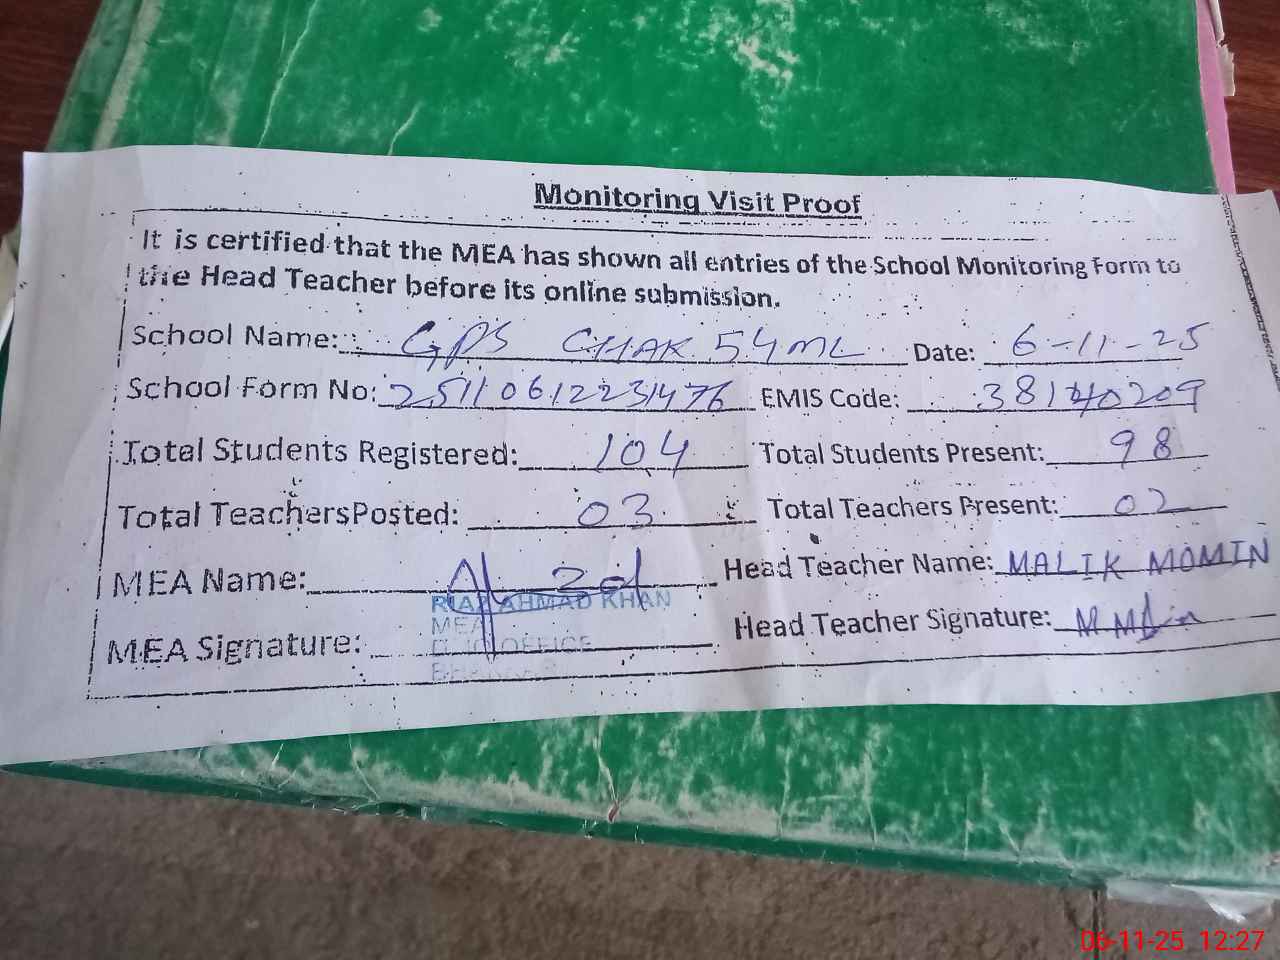 Monitoring Visit Proof
It is certified that the MEA has shown all entries of the School Monitoring Form to
the Head Teacher before its online submission.
School Name: GPS CHAK 54 ML Date: 6-11-25
School Form No: 251106122231476 EMIS Code: 38140209
Total Students Registered: 104 Total Students Present: 98
Total Teachers Posted: 03 Total Teachers Present: 02
MEA Name: Head Teacher Name: MALIK MOMIN
RIAZ AHMAD KHAN
MEA
MEA Signature: Head Teacher Signature:
OFFICE
06-11-25 12:27